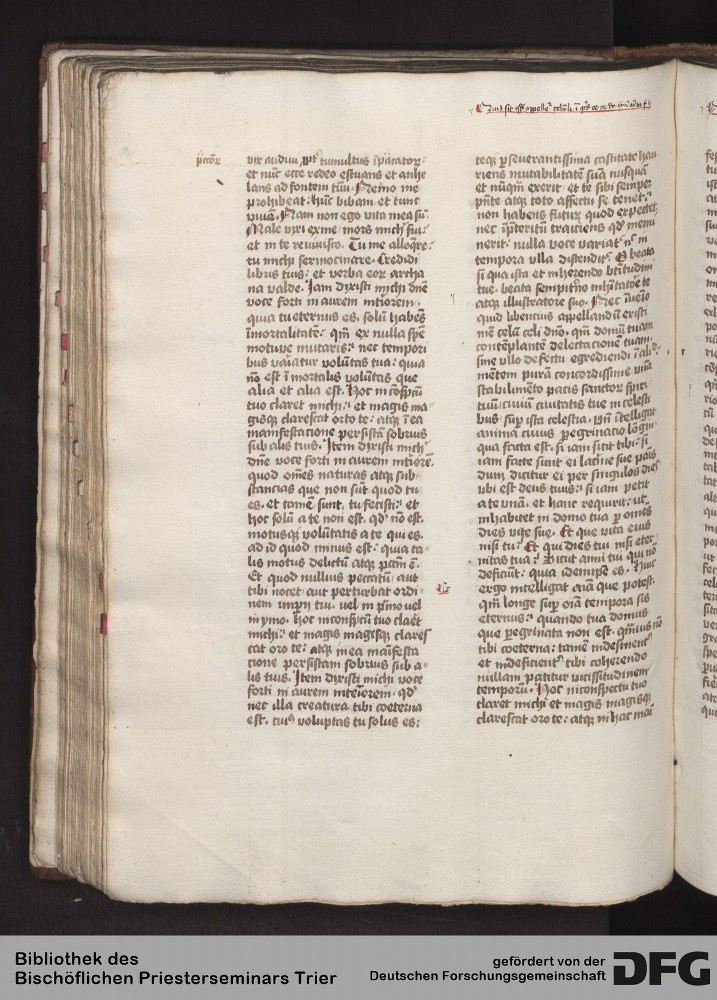 vix audiui ꝓpt̓ tumultus īpacator̄
et nūc ecce redeo estuans et anhe
lans ad fontem tuū. Nemo me
prohibeat. hūc bibam et tunc
viuā. Nam non ego vita mea sū.
Male vixi ex me mors michi fui
et in te reuiuisco. Tu me alloqre
tu michi sermocinare. Credidi
libris tuis et verba eoꝝ archa
na valde. Iam dixisti michi dn̄e
voce forti in aurem interiorem.
quia tu eternus es. solus habēs
īmortalitatē. qm̄ ex nulla spē
motuue mutaris. nec tempori
bus variatur volūtas tua. quia
nō est īmortalis volūtas que
alia et alia est. Hoc in cōspcū
tuo claret michi. et magis ma
gisqꝫ clarescat oro te. atqꝫ ī ea
manifestacione persistā sobrius
sub alis tuis. Item dixisti mich
dn̄e voce forti in aurem īteriorē.
quod om̄es naturas atqꝫ sub
stancias que non sūt quod tu
es. et tamē sunt. tu fecisti. et
hoc solū a te non est. qd̓ nō est.
motusqꝫ volūtatis a te qui es.
ad id quod minus est. quia ta
lis motus delictū atqꝫ pctm̄ ē.
Et quod nullius peccatū aut
tibi nocet aut perturbat ordi
nem imperij tui. vel in pīmo uel
in ymo. hoc in conspcū tuo claret
michi. et magis magisqꝫ clares
cat oro te. atqꝫ in ea manifesta
cione persistam sobrius sub a
lis tuis. Item dixisti michi voce
forti in aurem interiorem. qd̓
nec illa creatura tibi coeterna
est. cuiꝰ voluptas tu solus es.
teqꝫ ꝑseuerantissima castitate hau
riens mutabilitatē suā nusquā
et nūqm̄ exerit. et te sibi semper
pn̄te atqꝫ toto affectu se tenet.
non habens futuꝝ quod expectet
nec p̄teritū traiciens qd̓ memi
nerit. nulla voce variat nec in
tempora vlla distendit. O beata
si qua ista et inherendo btitudini
tue. beata sempitno inhitatore te
atqꝫ illustratore suo. Nec īuenio
quid libencius appellandū existi
mē celū celi dn̄o. qm̄ domū tuam
contēplantē delectacionē tuam
sine vllo defectu egrediendi ī aliud.
mētem purā concordissime vnā
stabilimēto pacis sanctoꝝ spiri
tuū ciuiū ciuitatis tue in celesti
bus suꝑ ista celestia. vn̄ ītelligat
anima cuius peregrinacio lōgin
qua facta est. si iam sitit tibi. si
iam facte sunt ei lacrime sue panis
dum dicitur ei per singulos dies
vbi est deus tuus. si iam petit
a te vnā et hanc requirit. ut
inhabitet in domo tua ꝑ om̄es
dies vite sue. Et que vita eius
nisi tu. Et qui dies tui nisi eter
nitas tua. Sicut anni tui qui nō
deficiūt. quia idem ipse es. Hinc
ergo intelligat aīa que potest.
qm̄ longe suꝑ oīa tempora sis
eternus. quando tua domus
que peregrinata non est. qm̄uis nō
tibi coeterna. tamē indesinenter
et indeficientꝰ tibi coherendo
nullam patitur vicissitudinem
temporū. Hoc in conspectu tuo
claret michi et magis magisqꝫ
clarescat oro te. atqꝫ in hac mai
Bibliothek des
Bischöflichen Priesterseminars Trier
gefördert von der
Deutschen Forschungsgemeinschaft
DFG